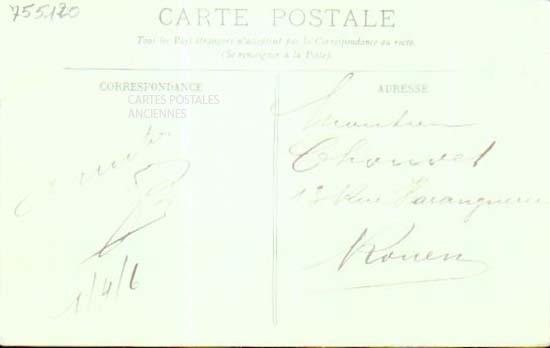 755120
CARTE POSTALE
Tous les Pays étrangers n'acceptent pas la Correspondance au recto.
(Se renseigner à la Poste).
CORRESPONDANCE
CARTES POSTALES
ANCIENNES
1/4/6
ADRESSE
Monsieur
Chouvet
13 Rue
Rouen